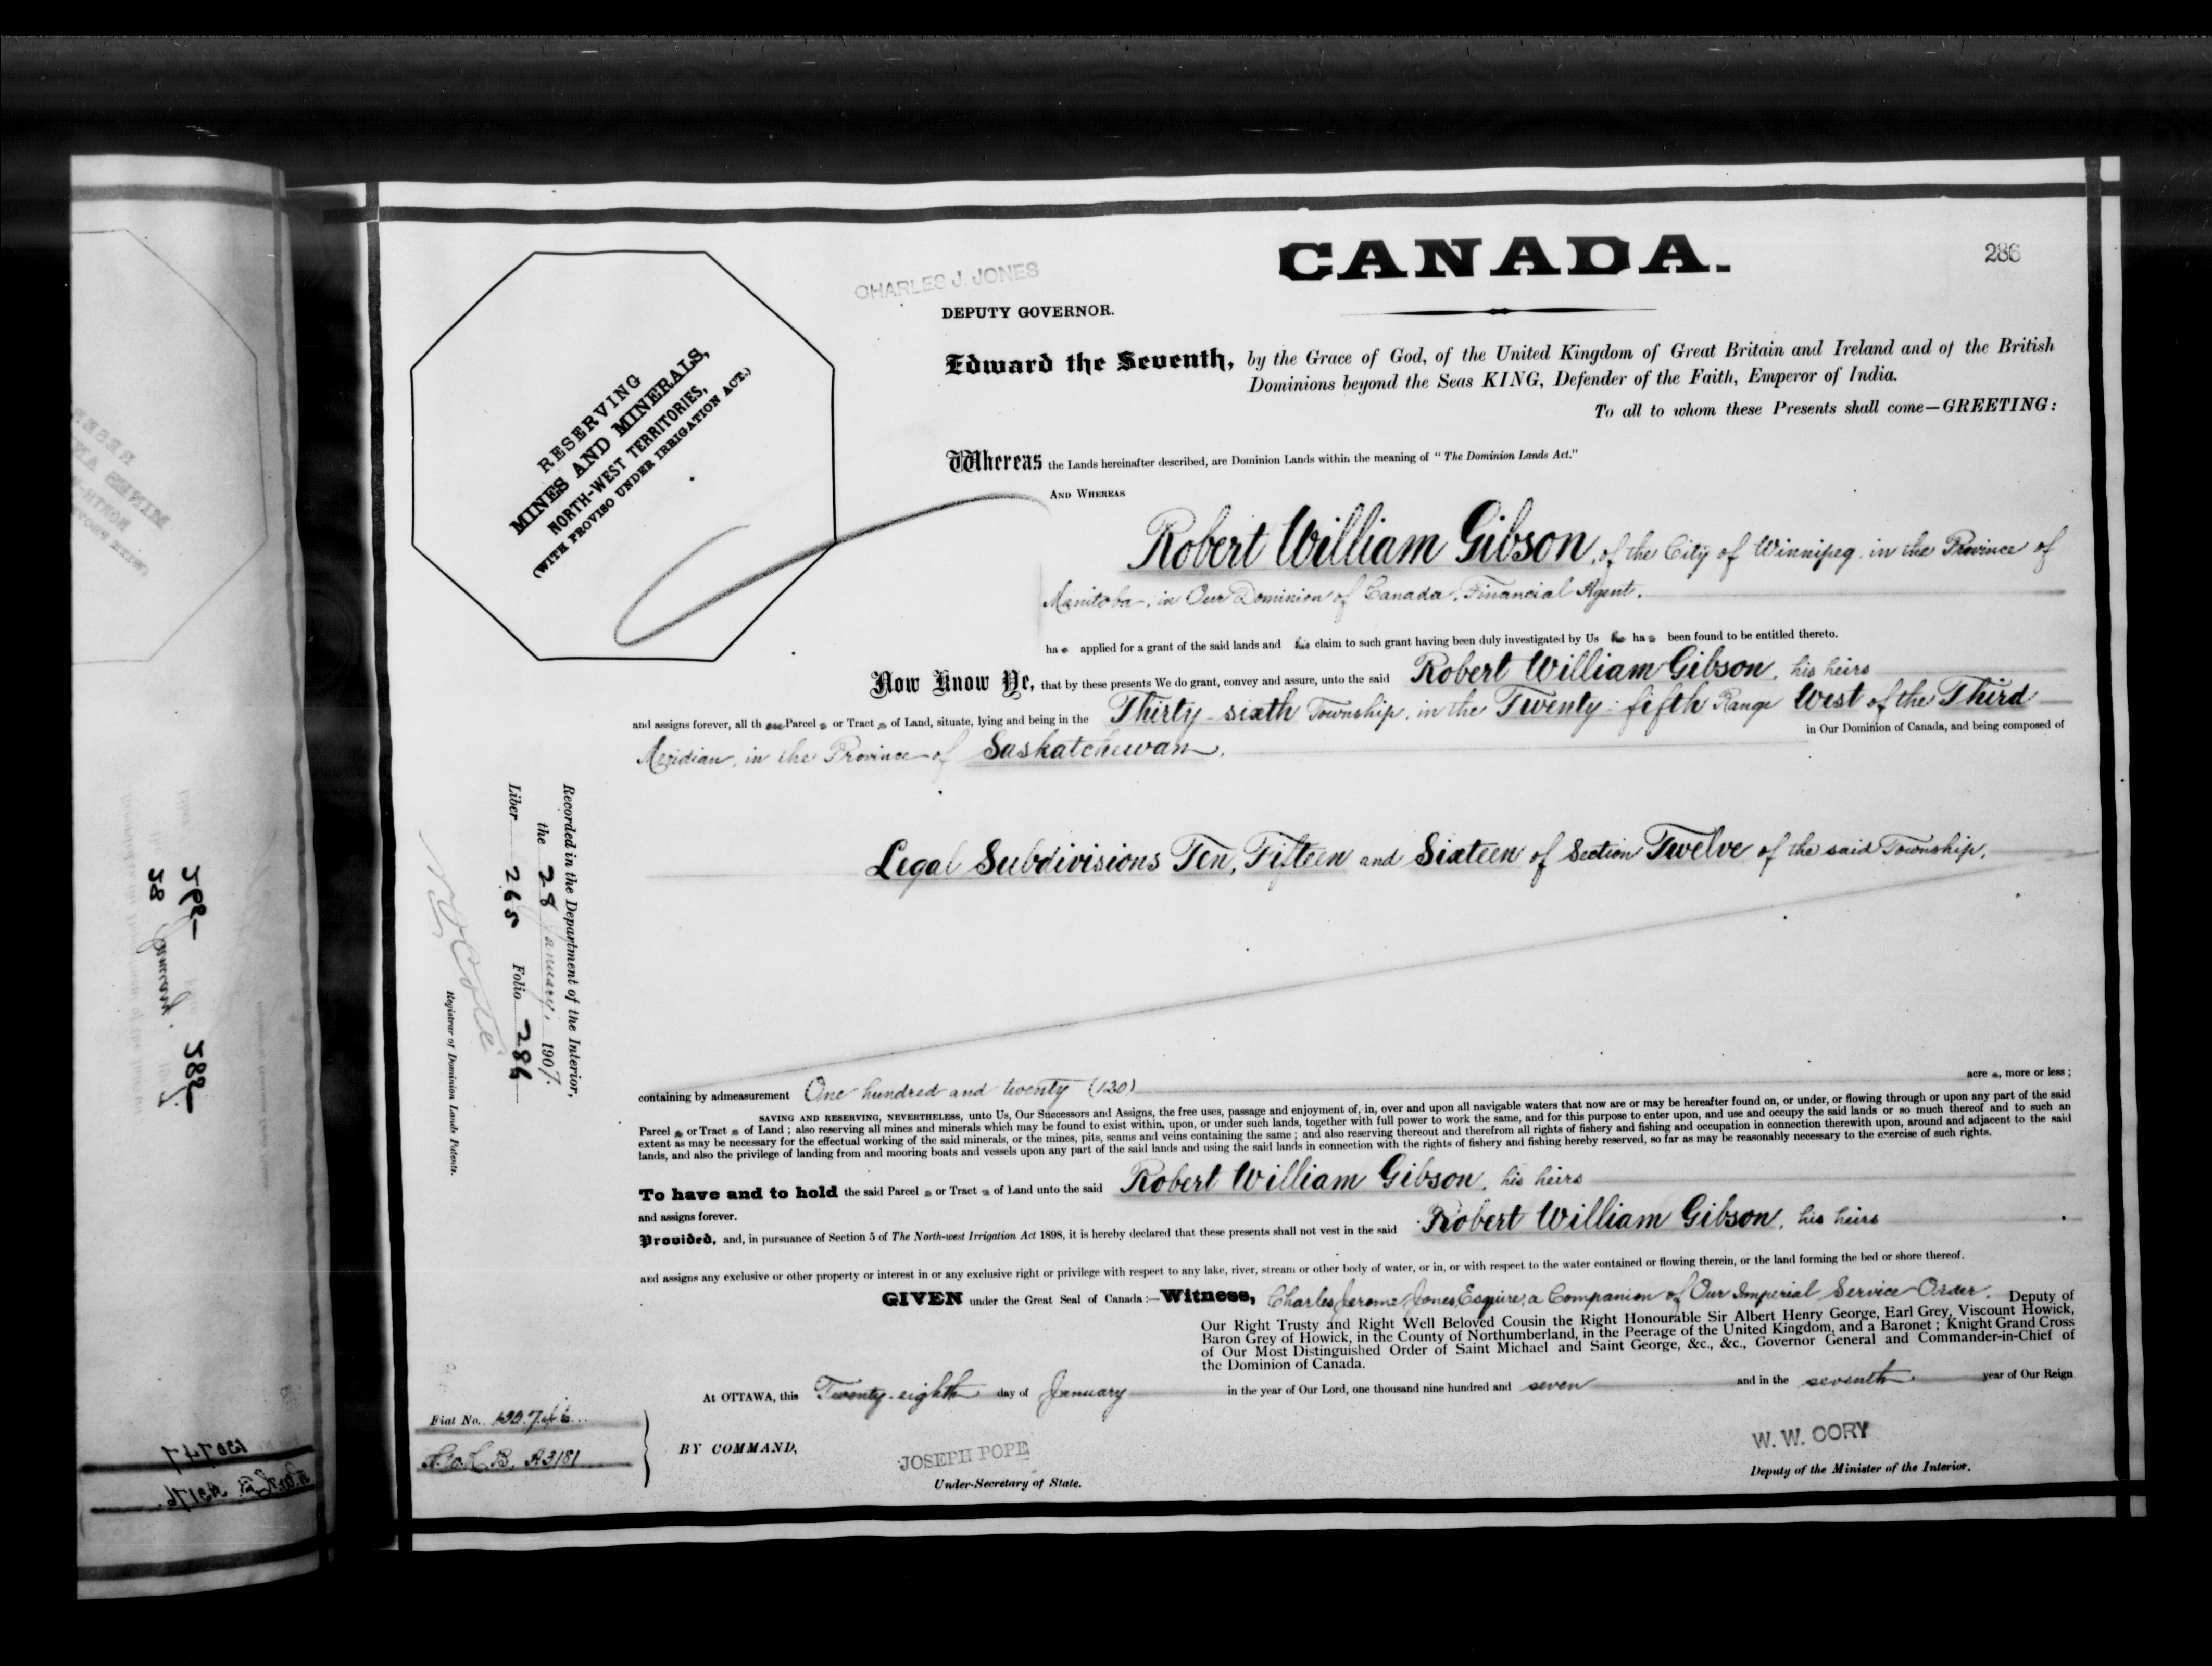 CANADA.
286
CHARLES J. JONES
DEPUTY GOVERNOR.
RESERVING
MINES AND MINERALS,
NORTH-WEST TERRITORIES,
(WITH PROVISO UNDER IRRIGATION ACT.)
Edward the Seventh, by the Grace of God, of the United Kingdom of Great Britain and Ireland and of the British
Dominions beyond the Seas KING, Defender of the Faith, Emperor of India.
To all to whom these Presents shall come—GREETING:
Whereas the Lands hereinafter described, are Dominion Lands within the meaning of "The Dominion Lands Act."
AND WHEREAS
Robert William Gibson, of the City of Winnipeg in the Province of
Manitoba, in Our Dominion of Canada, Financial Agent,
has applied for a grant of the said lands and his claim to such grant having been duly investigated by Us he has been found to be entitled thereto.
Now Know Ye, that by these presents We do grant, convey and assure, unto the said Robert William Gibson, his heirs
and assigns forever, all th Parcel or Tract of Land, situate, lying and being in the Thirty-sixth Township, in the Twenty-fifth Range West of the Third
Meridian, in the Province of Saskatchewan, in Our Dominion of Canada, and being composed of
Legal Subdivisions Ten, Fifteen and Sixteen of Section Twelve of the said Township,
Recorded in the Department of the Interior,
the 28 January, 1907.
Liber 265 Folio 286
Registrar of Dominion Lands Patents.
containing by admeasurement One hundred and twenty (120) acres, more or less;
SAVING AND RESERVING, NEVERTHELESS, unto Us, Our Successors and Assigns, the free uses, passage and enjoyment of, in, over and upon all navigable waters that now are or may be hereafter found on, or under, or flowing through or upon any part of the said
Parcel or Tract of Land; also reserving all mines and minerals which may be found to exist within, upon, or under such lands, together with full power to work the same, and for this purpose to enter upon, and use and occupy the said lands or so much thereof and to such an
extent as may be necessary for the effectual working of the said minerals, or the mines, pits, seams and veins containing the same; and also reserving thereout and therefrom all rights of fishery and fishing and occupation in connection therewith upon, around and adjacent to the said
lands, and also the privilege of landing from and mooring boats and vessels upon any part of the said lands and using the said lands in connection with the rights of fishery and fishing hereby reserved, so far as may be reasonably necessary to the exercise of such rights.
To have and to hold the said Parcel or Tract of Land unto the said Robert William Gibson, his heirs
and assigns forever.
Provided, and, in pursuance of Section 5 of The North-west Irrigation Act 1898, it is hereby declared that these presents shall not vest in the said Robert William Gibson, his heirs
and assigns any exclusive or other property or interest in or any exclusive right or privilege with respect to any lake, river, stream or other body of water, or in, or with respect to the water contained or flowing therein, or the land forming the bed or shore thereof.
GIVEN under the Great Seal of Canada:—Witness, Charles Jerome Jones, Esquire, a Companion of Our Imperial Service Order, Deputy of
Our Right Trusty and Right Well Beloved Cousin the Right Honourable Sir Albert Henry George, Earl Grey, Viscount Howick,
Baron Grey of Howick, in the County of Northumberland, in the Peerage of the United Kingdom, and a Baronet; Knight Grand Cross
of Our Most Distinguished Order of Saint Michael and Saint George, &c., &c., Governor General and Commander-in-Chief of
the Dominion of Canada.
At OTTAWA, this Twenty-eighth day of January in the year of Our Lord, one thousand nine hundred and seven and in the seventh year of Our Reign
Fiat No.
A3181
BY COMMAND,
JOSEPH POPE
Under-Secretary of State.
W. W. CORY
Deputy of the Minister of the Interior.